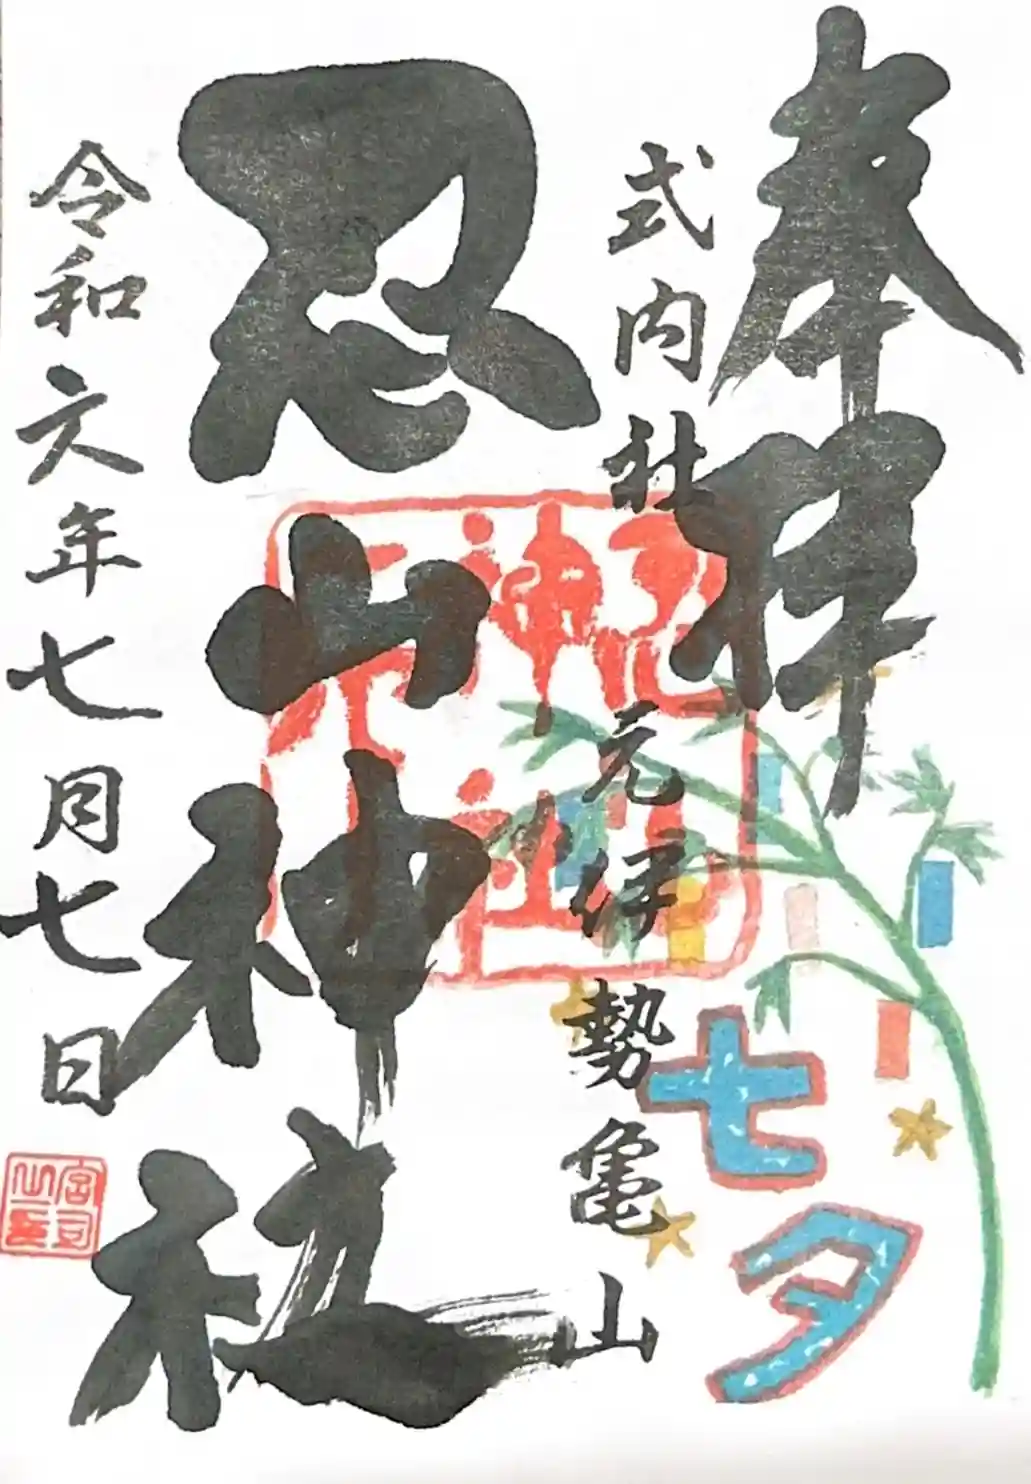 奉拝
式内社 元伊勢亀山
七夕
忍山神社
令和六年七月七日